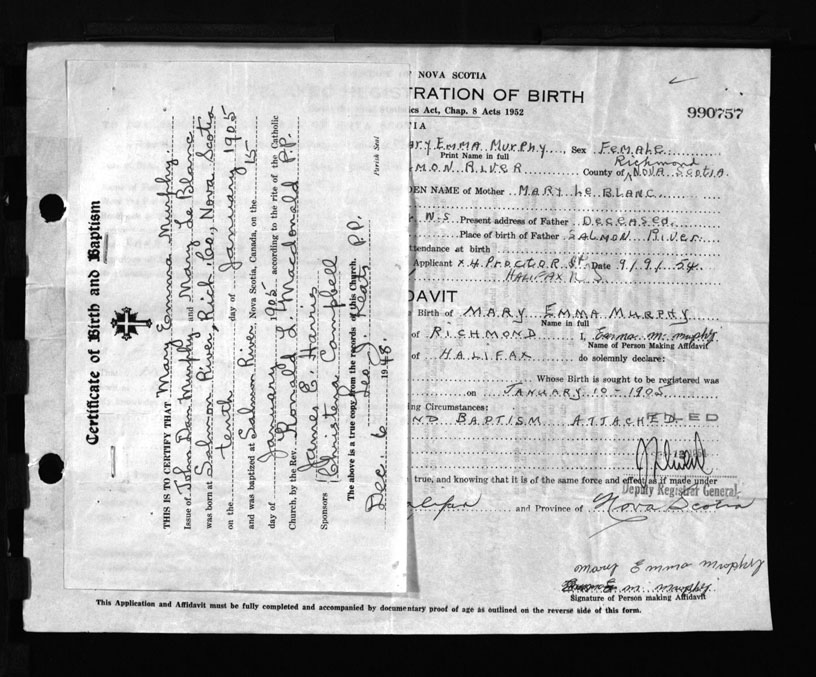 Certificate of Birth and Baptism
THIS IS TO CERTIFY THAT Mary Emma Murphy
Issue of John Dan Murphy and Mary Le Blanc
was born at Salmon River, Rich. Co., Nova Scotia
on the tenth day of January 1905
and was baptized at Salmon River Nova Scotia, Canada, on the 15
day of January 1905 according to the rite of the Catholic
Church, by the Rev. Ronald L Macdonald P.P.
Sponsors James E. Harris
Christena Campbell
The above is a true copy from the records of this Church.
Leo J. Keats P.P.
Dec. 6 1948. Parish Seal
NOVA SCOTIA
TRATION OF BIRTH
ics Act, Chap. 8 Acts 1952
990757
ary Emma Murphy Sex Female
Print Name in full
Richmond
mon River County of Nova Scotia.
DEN NAME of Mother Mary Le Blanc
N.S Present address of Father Deceased
Place of birth of Father Salmon River
ttendance at birth
Applicant x 4 Proctor St Date 9/9/54.
Halifax N S
DAVIT
Birth of Mary Emma Murphy
Name in full
of Richmond I, Emma M. Murphy
Name of Person Making Affidavit
of Halifax do solemnly declare:
Whose Birth is sought to be registered was
on January 10 - 1905
ng Circumstances:
nd Baptism Attached
true, and knowing that it is of the same force and effect as if made under
Deputy Registrar General
alifax and Province of Nova Scotia
Mary Emma Murphy
Emma M. Murphy
Signature of Person making Affidavit
This Application and Affidavit must be fully completed and accompanied by documentary proof of age as outlined on the reverse side of this form.